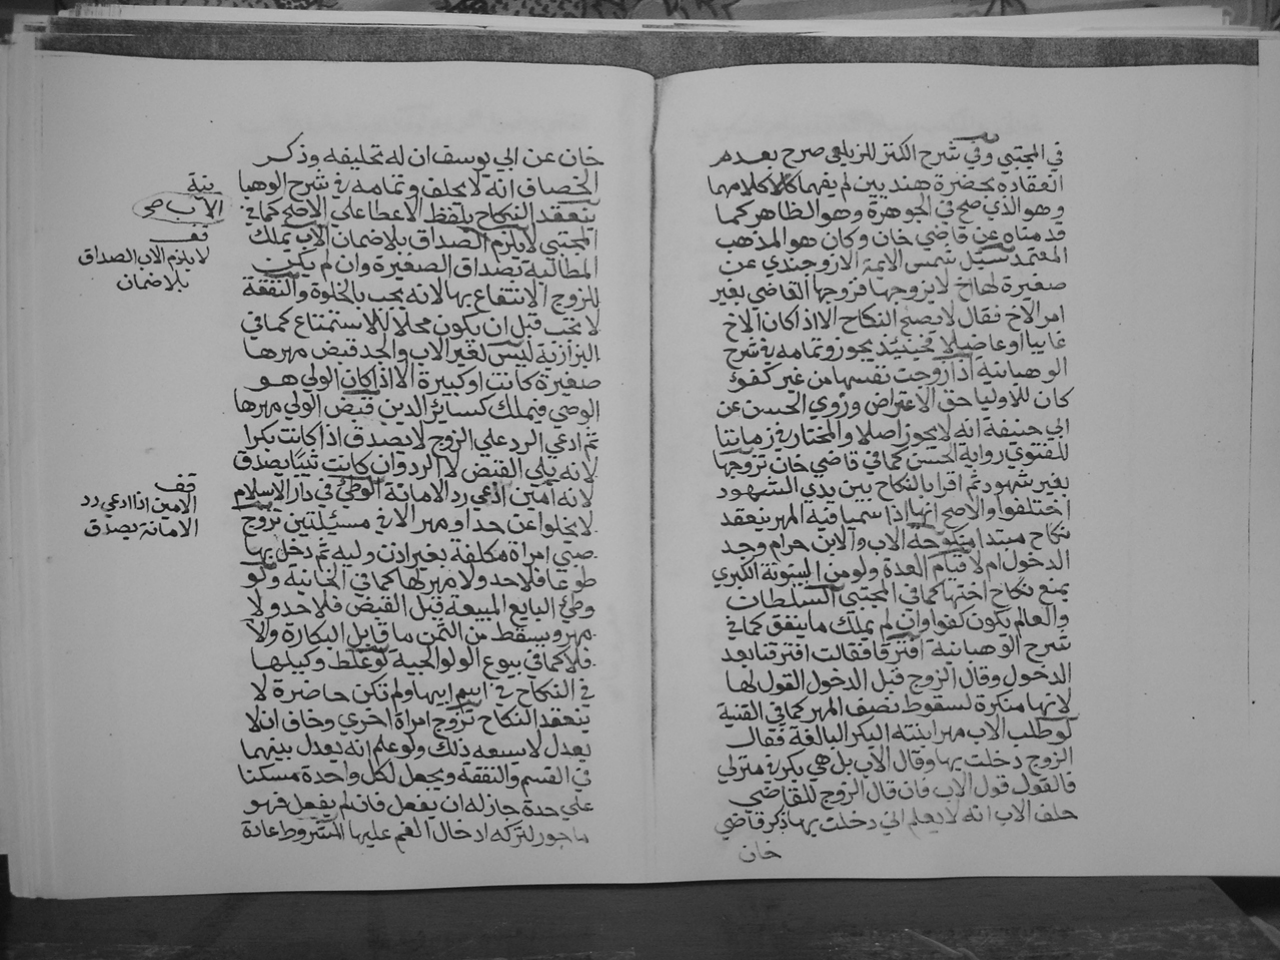 في المجتبي وفي شرح الكنز للزيلعي صرح بعدم
انعقاده بحضرة هنديين لم يفهما كلامهما
وهو الذي صح في الجوهرة وهو الظاهر كما
قدمناه عن قاضي خان وكان هو المذهب
المعتمد سيل شمس الايمة الاروجندي عن
صغيرة لها اخ لا يزوجها فزوجها القاضي بغير
امر الاخ فقال لا يصح النكاح الا اذا كان الاخ
غايبا او عاضلا فحينيذ يجوز وتمامه في شرح
الوهبانية اذا زوجت نفسها من غير كفوء
كان للاوليا حق الاعتراض وروي الحسن عن
ابي حنيفة انه لا يجوز اصلا والمختار في زماننا
للفتوي رواية الحسن كما في قاضي خان تزوجها
بغير شهود ثم اقرا بالنكاح بين يدي الشهود
اختلفوا والاصح انهما اذا سميا فيه المهر ينعقد
نكاح مبتدا منكوحة الاب والابن حرام وجد
الدخول ام لا قيام العدة ولو من البينونة الكبري
يمنع نكاح اختها كما في المجتبي السلطان
والعالم يكون كفوا وان لم يملك ما ينفق كما في
شرح الوهبانية افترقا فقالت افترقنا بعد
الدخول وقال الزوج قبل الدخول القول لها
لانها منكرة لسقوط نصف المهر كما في القنية
لو طلب الاب مهر ابنته البكر البالغة فقال
الزوج دخلت بها وقال الاب بل هي بكر في منزلي
فالقول قول الاب فان قال الزوج للقاضي
حلف الاب انه لا يعلم اني دخلت بها ذكر قاضي
خان
خان عن ابي يوسف ان له تحليفه وذكر
الخصاف انه لا يحلف وتمامه في شرح الوهبا
نية
ينعقد النكاح بلفظ الاعطا علي الاصح كما في
الاب صح
المجتبي لا يلزم الصداق بلا ضمان الاب يملك
قف
لا يلزم الاب الصداق
بلا ضمان
المطالبة بصداق الصغيرة وان لم يكن
للزوج الانتفاع بها لانه يجب بالخلوة والنفقة
لا تجب قبل ان يكون محلا للاستمتاع كما في
البزازية ليس لغير الاب والجد قبض مهرها
صغيرة كانت او كبيرة الا اذا كان الولي هو
الوصي فيملك كساير الدين قبض الولي مهرها
ثم ادعي الرد علي الزوج لا يصدق اذا كانت بكرا
لانه يلي القبض لا الرد وان كانت ثيبا يصدق
لانه امين ادعي رد الامانة الوطئ في دار الاسلام
قف
الامين اذا ادعي رد
الامانة يصدق
لا يخلوا عن حد او مهر الا في مسئلتين تزوج
صبي امراة مكلفة بغير اذن وليه ثم دخل بها
طوعا فلا حد ولا مهر لها كما في الخانية ولو
وطئ البايع المبيعة قبل القبض فلا حد ولا
مهر ويسقط من الثمن ما قابل البكارة والا
فلا كما في بيوع الولوالجية لو غلط وكيلها
في النكاح في اسم ابيها ولم تكن حاضرة لا
ينعقد النكاح تزوج امراة اخري وخاف ان لا
يعدل لا يسعه ذلك ولو علم انه يعدل بينهما
في القسم والنفقة ويجعل لكل واحدة مسكنا
علي حدة جاز له ان يفعل فان لم يفعل فهو
ماجور لتركه ادخال الغم عليها المشروط عادة